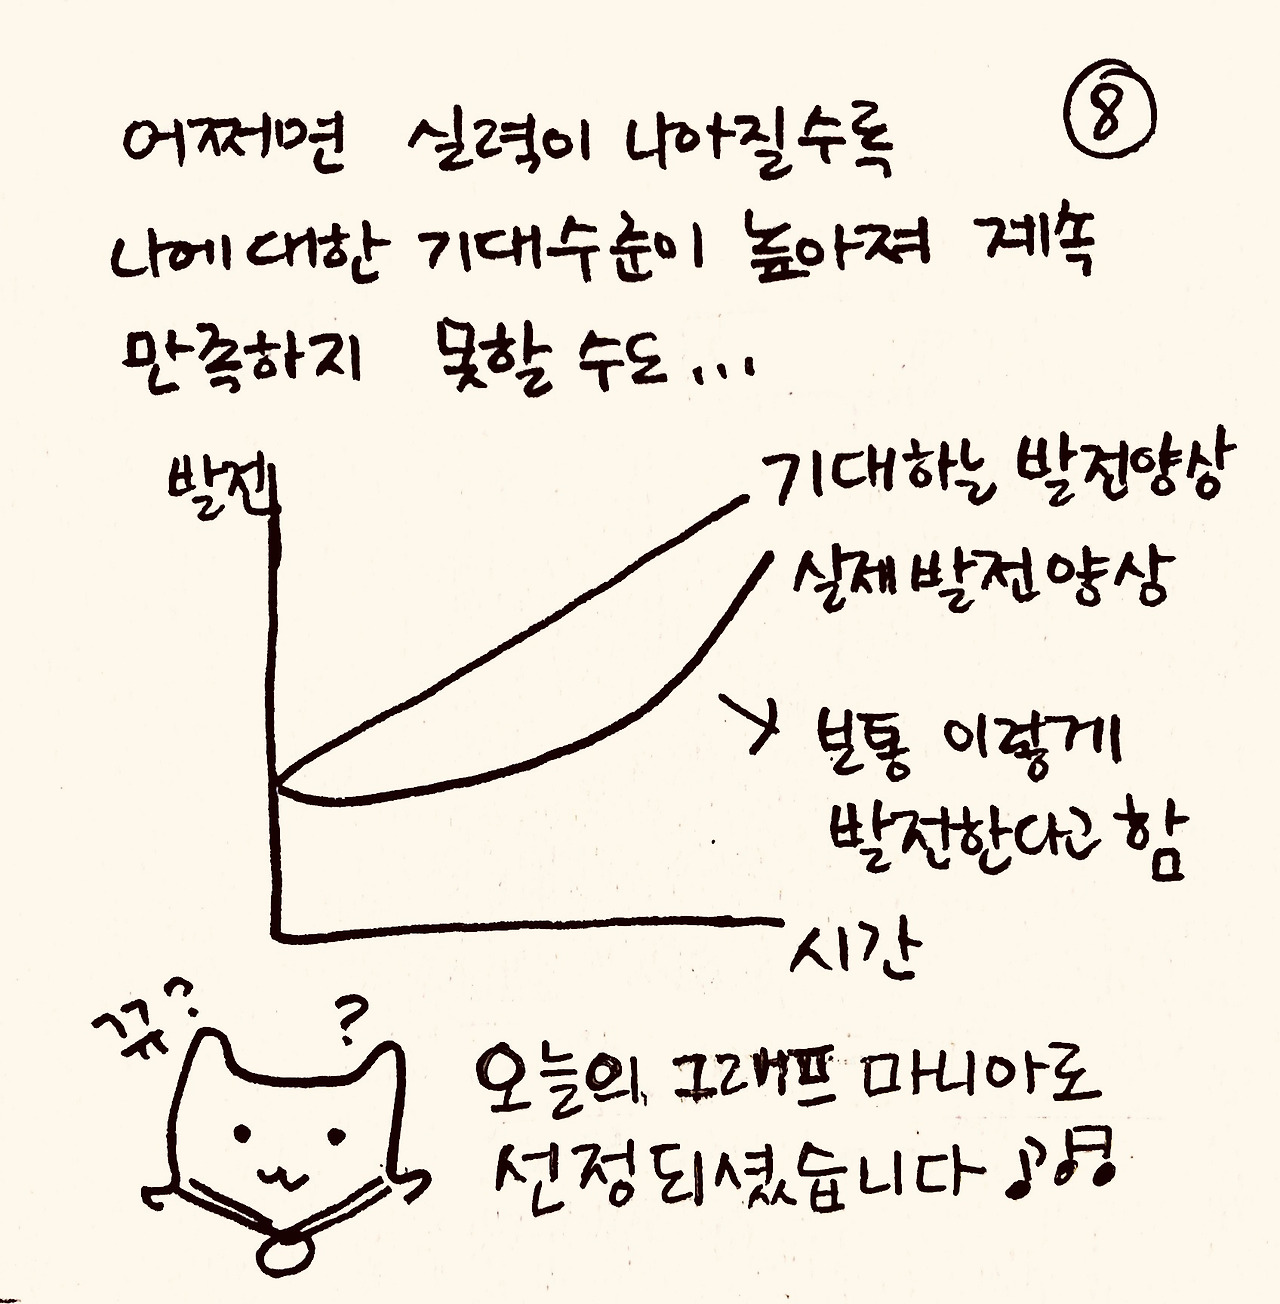 ⑧
어쩌면 실력이 나아질수록
나에대한 기대수준이 높아져 계속
만족하지 못할 수도...
발전
기대하는 발전양상
실제발전양상
보통 이렇게
발전한다고 함
시간
뀨?
?
오늘의 그래프 마니아로
선정되셨습니다♪♬